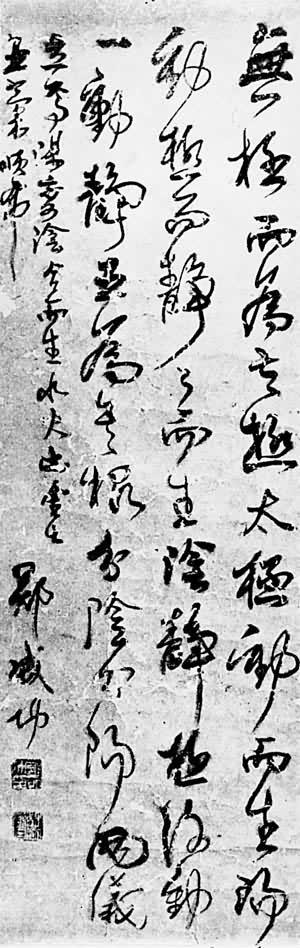 無極而為太極太極動而生陽
動極而靜々而生陰靜極復動
一動靜互為其根分陰分陽兩儀
陰合而生水火
順布
鄭成功